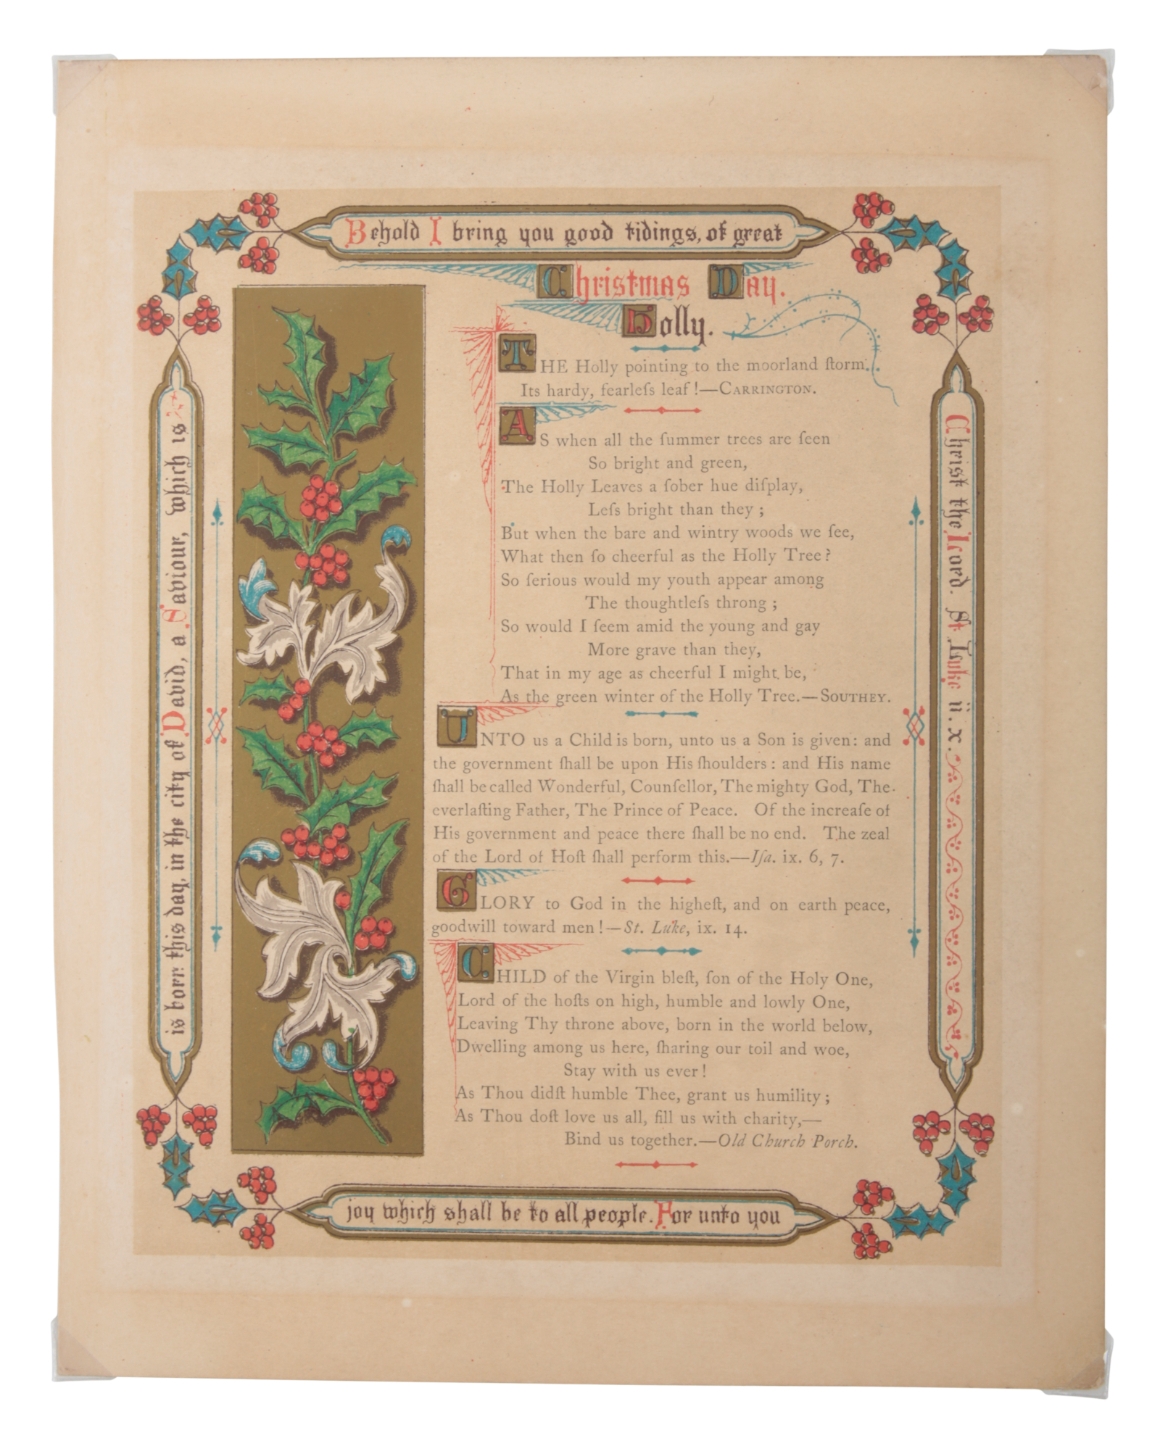 Behold I bring you good tidings, of great
Christmas Day.
Holly.
THE Holly pointing to the moorland ſtorm.
Its hardy, fearleſs leaf!—CARRINGTON.
AS when all the ſummer trees are ſeen
So bright and green,
The Holly Leaves a ſober hue diſplay,
Leſs bright than they ;
But when the bare and wintry woods we ſee,
What then ſo cheerful as the Holly Tree?
So ſerious would my youth appear among
The thoughtleſs throng ;
So would I ſeem amid the young and gay
More grave than they,
That in my age as cheerful I might be,
As the green winter of the Holly Tree.—SOUTHEY.
UNTO us a Child is born, unto us a Son is given: and
the government ſhall be upon His ſhoulders: and His name
ſhall be called Wonderful, Counſellor, The mighty God, The
everlaſting Father, The Prince of Peace. Of the increaſe of
His government and peace there ſhall be no end. The zeal
of the Lord of Hoſt ſhall perform this.—Iſa. ix. 6, 7.
GLORY to God in the higheſt, and on earth peace,
goodwill toward men!—St. Luke, ix. 14.
CHILD of the Virgin bleſt, ſon of the Holy One,
Lord of the hoſts on high, humble and lowly One,
Leaving Thy throne above, born in the world below,
Dwelling among us here, ſharing our toil and woe,
Stay with us ever!
As Thou didſt humble Thee, grant us humility;
As Thou doſt love us all, fill us with charity,—
Bind us together.—Old Church Porch.
joy which shall be to all people. For unto you
is born this day, in the city of David, a Saviour, which is
Christ the Lord. St Luke ii. x.